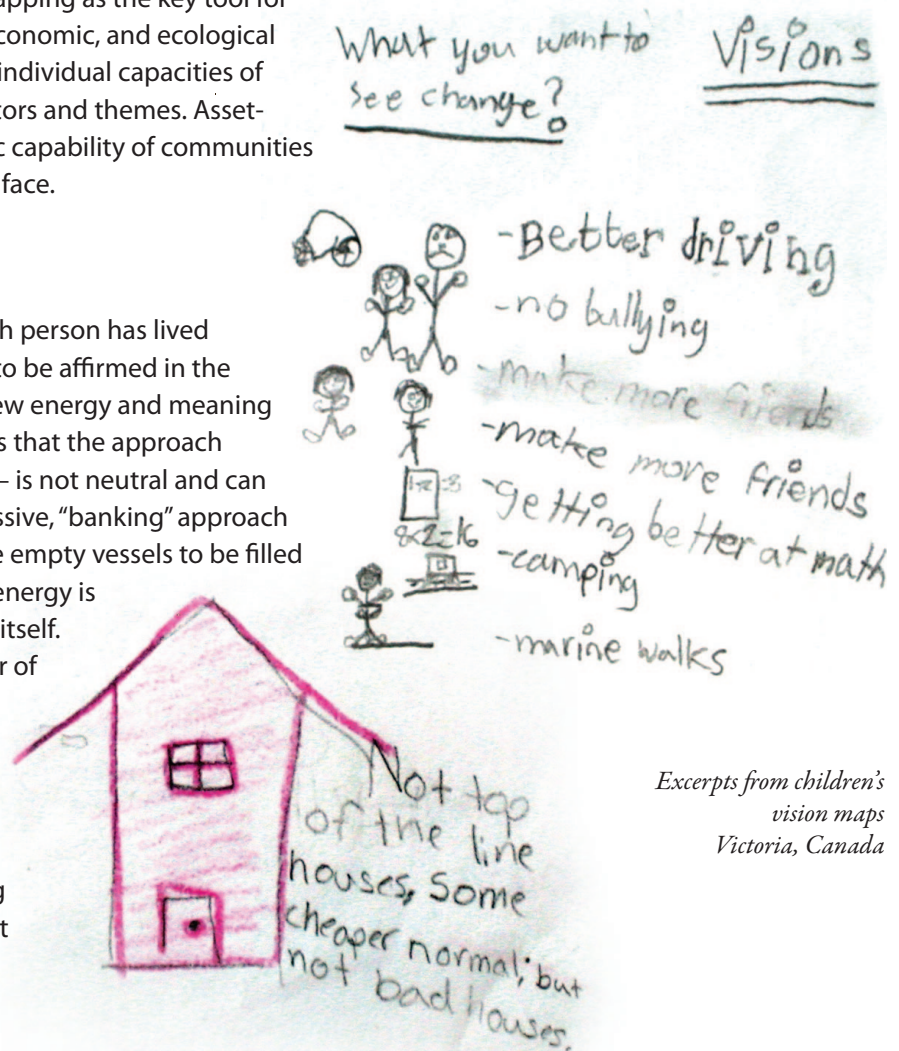 apping as the key tool for
conomic, and ecological
individual capacities of
tors and themes. Asset-
c capability of communities
face.
h person has lived
to be affirmed in the
ew energy and meaning
s that the approach
– is not neutral and can
ssive, “banking” approach
e empty vessels to be filled
energy is
itself.
r of
g
t
What you want to
see change?
Visions
-Better driving
-no bullying
-make more friends
-make more friends
-getting better at math
8x2=16
-camping
-marine walks
Not top
of the line
houses, Some
cheaper normal; but
not bad houses.
Excerpts from children’s
vision maps
Victoria, Canada